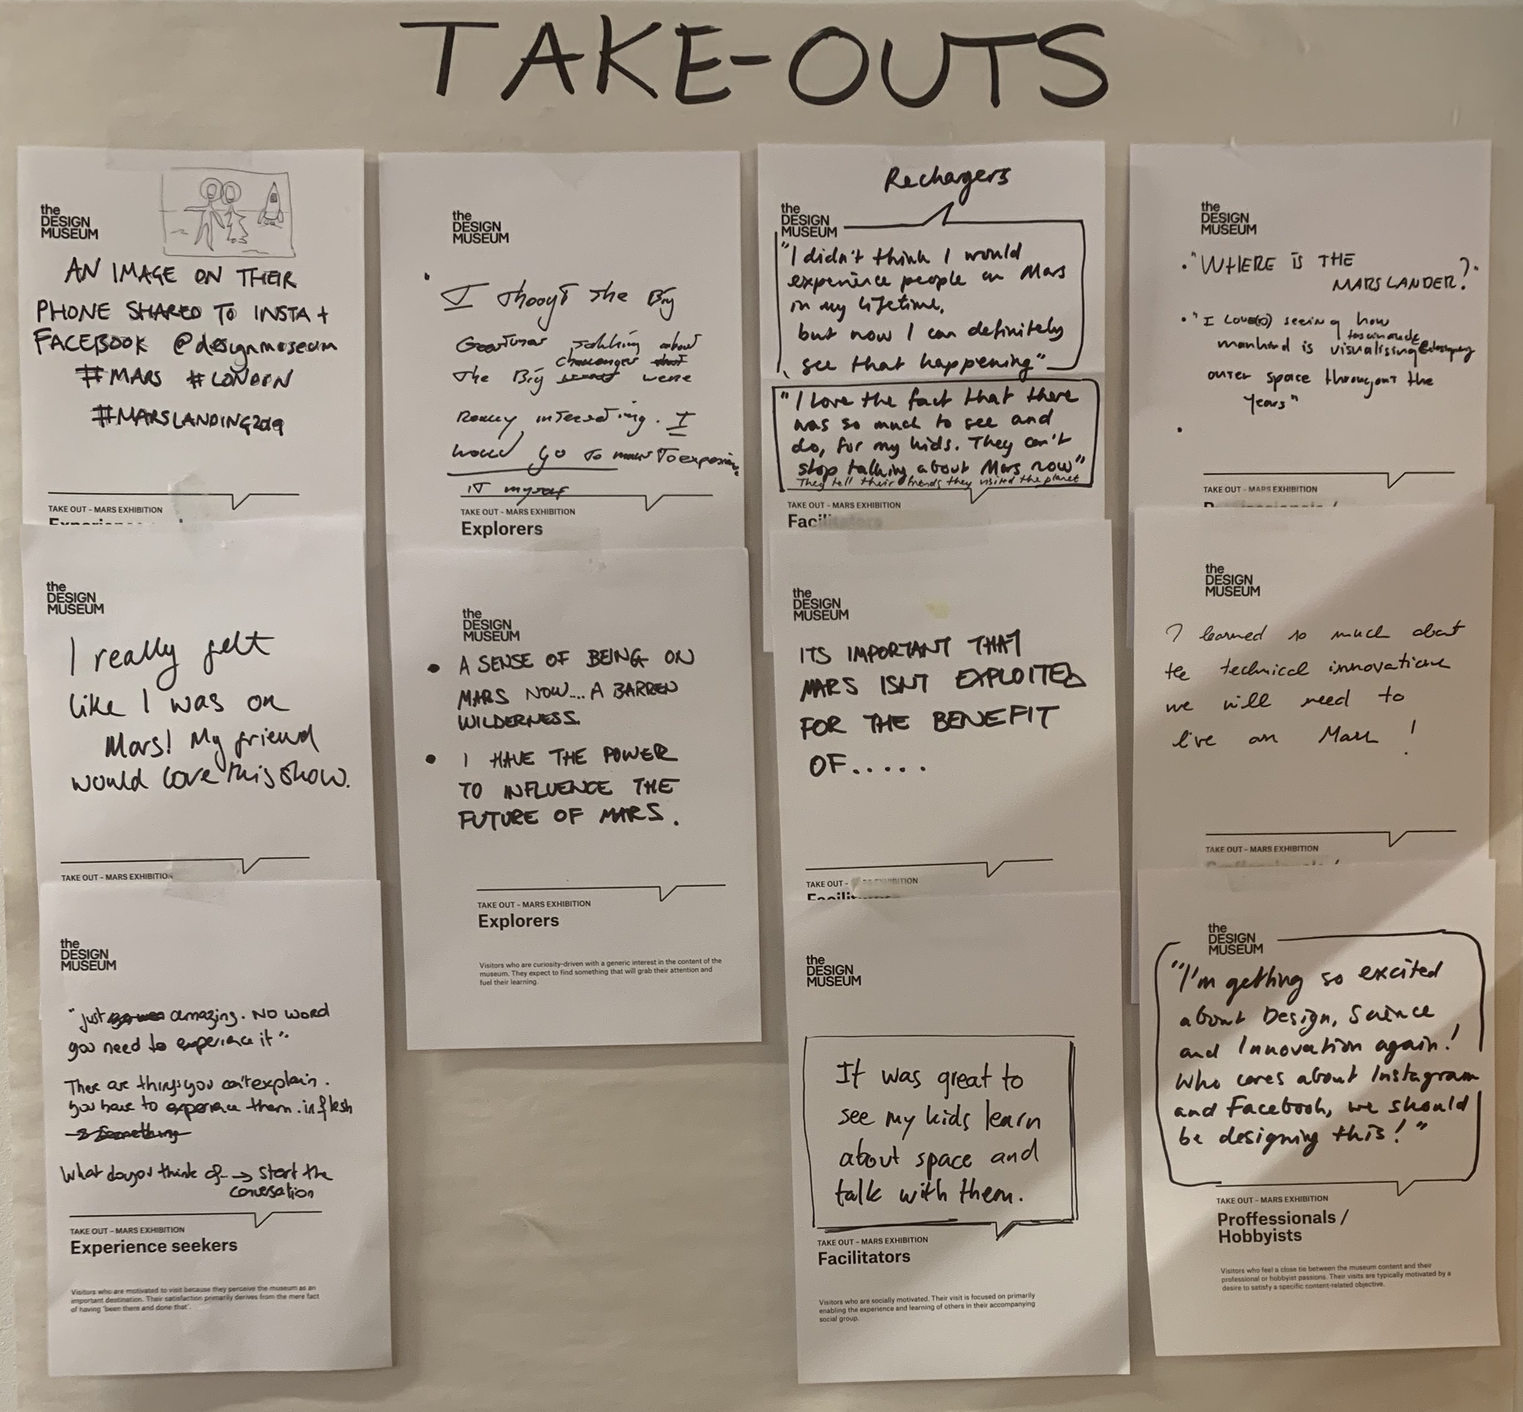 TAKE-OUTS
the
DESIGN
MUSEUM
AN IMAGE ON THEIR
PHONE SHARED TO INSTA +
FACEBOOK @designmuseum
#MARS #LONDON
#MARSLANDING2019
TAKE OUT – MARS EXHIBITION
the
DESIGN
MUSEUM
I really felt
like I was on
Mars! My friend
would love this show.
TAKE OUT – MARS EXHIBITION
the
DESIGN
MUSEUM
"just amazing. NO WORD
you need to experience it"
Ther are things you can't explain.
you have to experience them. in flesh
Something
What do you think of → start the
conversation
TAKE OUT – MARS EXHIBITION
Experience seekers
Visitors who are motivated to visit because they perceive the museum as an
important destination. Their satisfaction primarily derives from the mere fact
of having 'been there and done that'.
the
DESIGN
MUSEUM
I thougt the Big
talking about
The Big challenges were
Really interesting. I
would go to to
it myself
TAKE OUT – MARS EXHIBITION
Explorers
the
DESIGN
MUSEUM
• A SENSE OF BEING ON
MARS NOW... A BARREN
WILDERNESS.
• I HAVE THE POWER
TO INFLUENCE THE
FUTURE OF MARS.
TAKE OUT – MARS EXHIBITION
Explorers
Visitors who are curiosity-driven with a generic interest in the content of the
museum. They expect to find something that will grab their attention and
fuel their learning.
Rechagers
the
DESIGN
MUSEUM
"I didn't think I would
experience people on Mars
in my lifetime,
but now I can definitely
see that happening"
"I love the fact that there
was so much to see and
do, for my kids. They can't
stop talking about Mars now"
They tell their friends they visited the planet
TAKE OUT – MARS EXHIBITION
the
DESIGN
MUSEUM
ITS IMPORTANT THAT
MARS ISNT EXPLOITED
FOR THE BENEFIT
OF.....
TAKE OUT – MARS EXHIBITION
the
DESIGN
MUSEUM
It was great to
see my kids learn
about space and
talk with them.
TAKE OUT – MARS EXHIBITION
Facilitators
Visitors who are socially motivated. Their visit is focused on primarily
enabling the experience and learning of others in their accompanying
social group.
the
DESIGN
MUSEUM
• "WHERE IS THE
MARS LANDER?"
• "I seeing how
mankind is visualising
outer space throughout the
Years"
•
TAKE OUT – MARS EXHIBITION
the
DESIGN
MUSEUM
I learned so much about
the technical innovations
we will need to
live on Mars!
TAKE OUT – MARS EXHIBITION
the
DESIGN
MUSEUM
"I'm getting so excited
about Design, Science
and Innovation again!
Who cares about Instagram
and Facebook, we should
be designing this!"
TAKE OUT – MARS EXHIBITION
Proffessionals /
Hobbyists
Visitors who feel a close tie between the museum content and their
professional or hobbyist passions. Their visits are typically motivated by a
desire to satisfy a specific content-related objective.